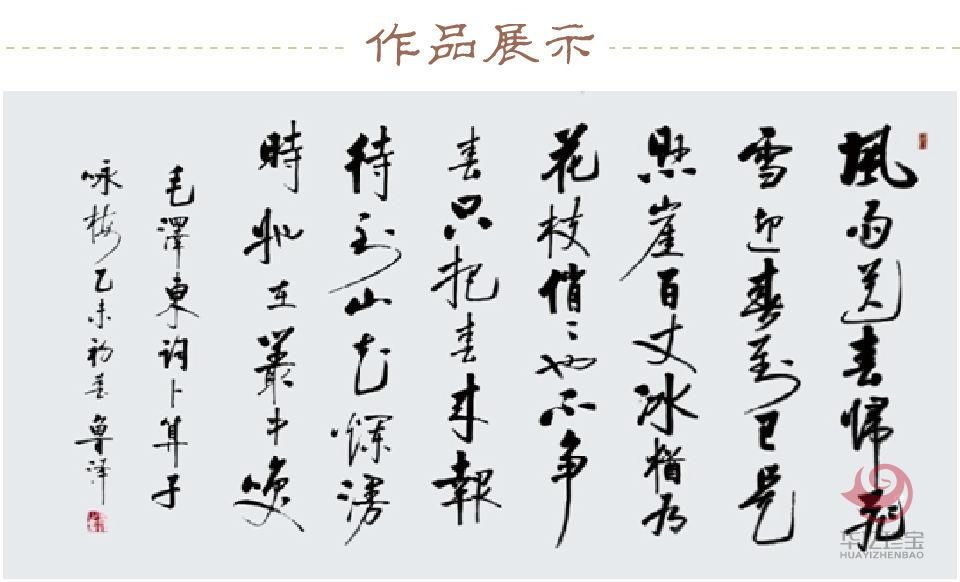 作品展示
風雨送春歸飛
雪迎春到已是
懸崖百丈冰猶有
花枝俏々也不争
春只把春来報
待到山花爛漫
時她在叢中笑
毛澤東詞卜算子
咏梅乙未初春魯澤
华亿珍宝
HUAYIZHENBAO